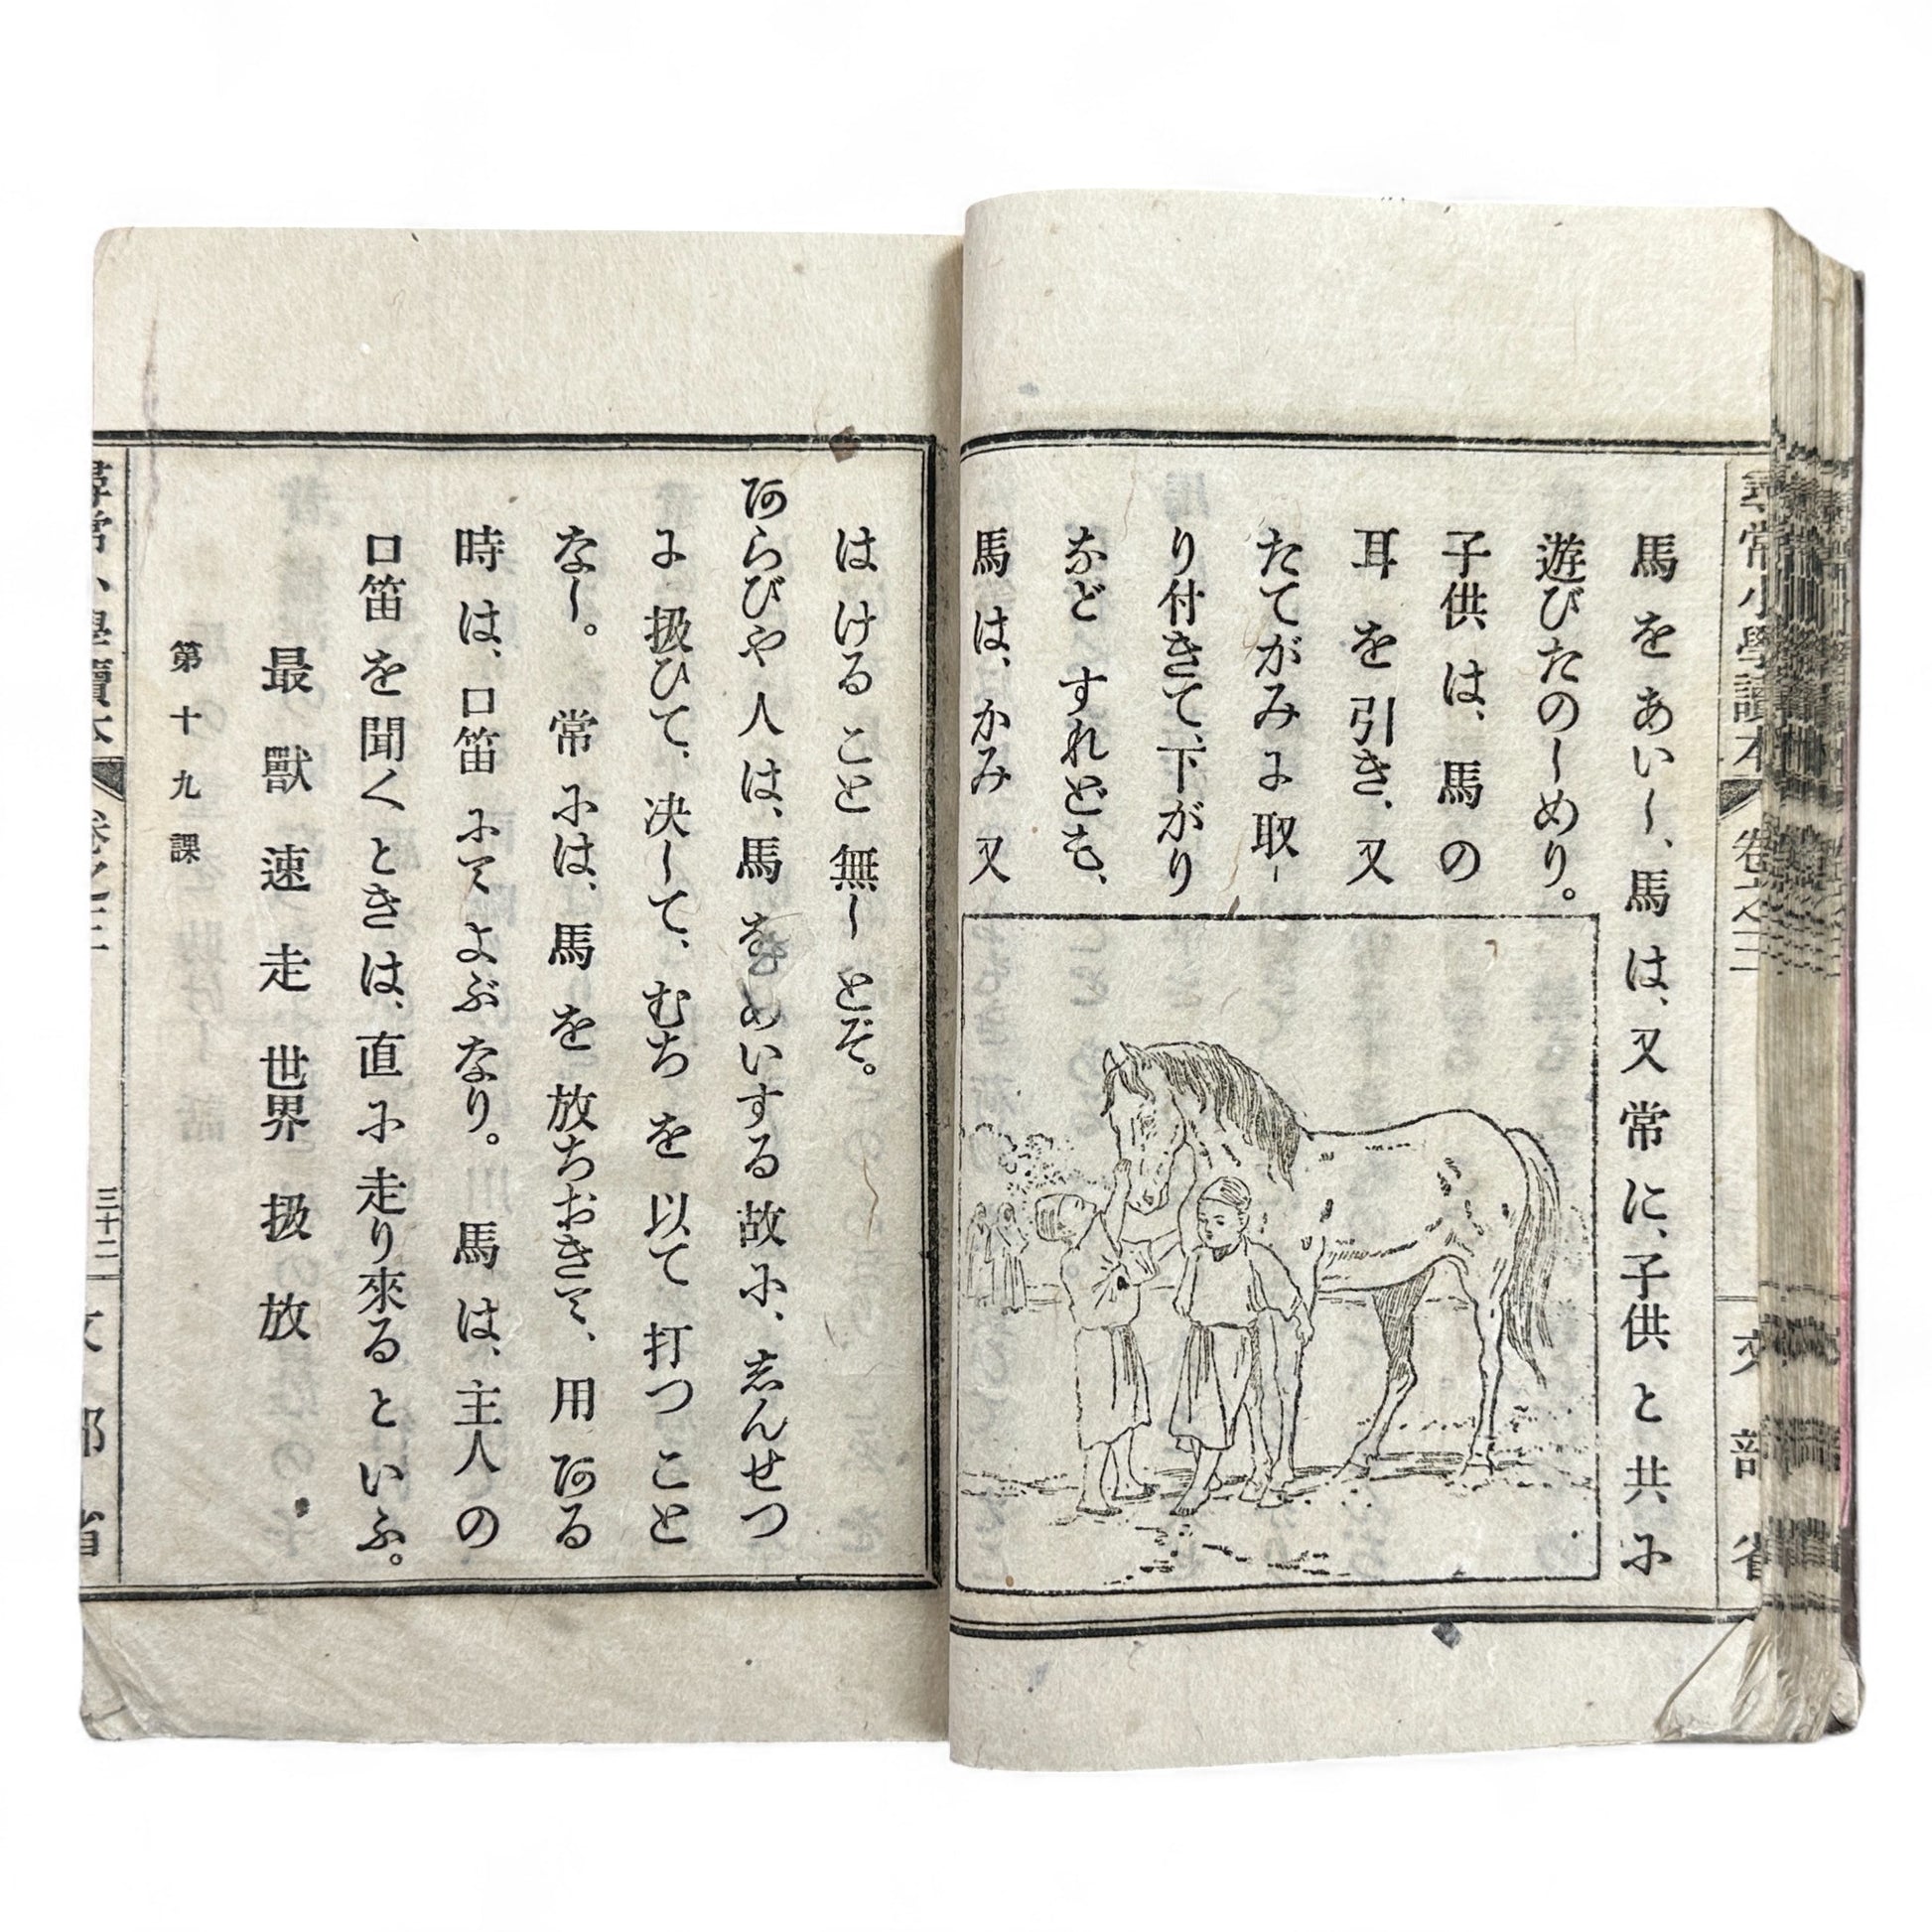 尋常小學讀本 卷之 文部省
馬をあいし、馬は、又常に、子供と共に
遊びたのしめり。
子供は、馬の
耳を引き、又
たてがみに取
り付きて、下がり
などすれども、
馬は、かみ又
はけること無しとぞ。
あらびや人は、馬をあいする故に、しんせつ
に扱ひて、决して、むちを以て打つこと
なし。常には、馬を放ちおきて、用ある
時は、口笛にてよぶなり。馬は、主人の
口笛を聞くときは、直に走り來るといふ。
最 獸 速 走 世界 扱 放
第十九課
尋常小學讀本 卷之 三十二 文部省